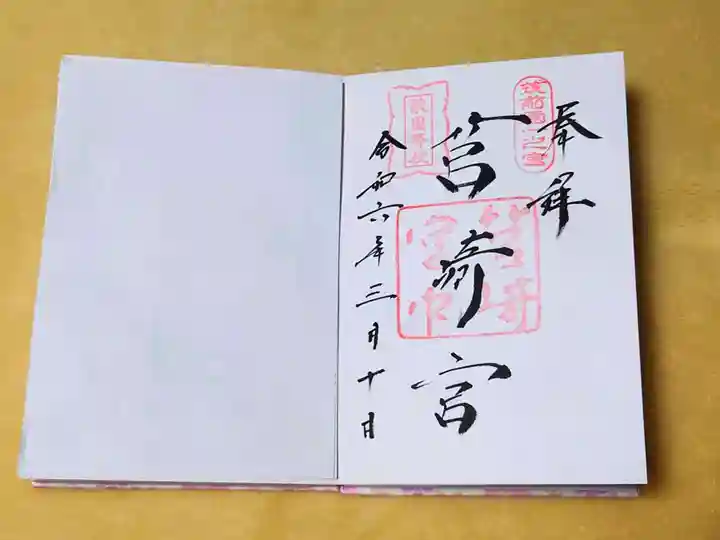 奉拝
筑前國一之宮
筥崎宮
筥崎宮印
敵国降伏
令和六年三月十日